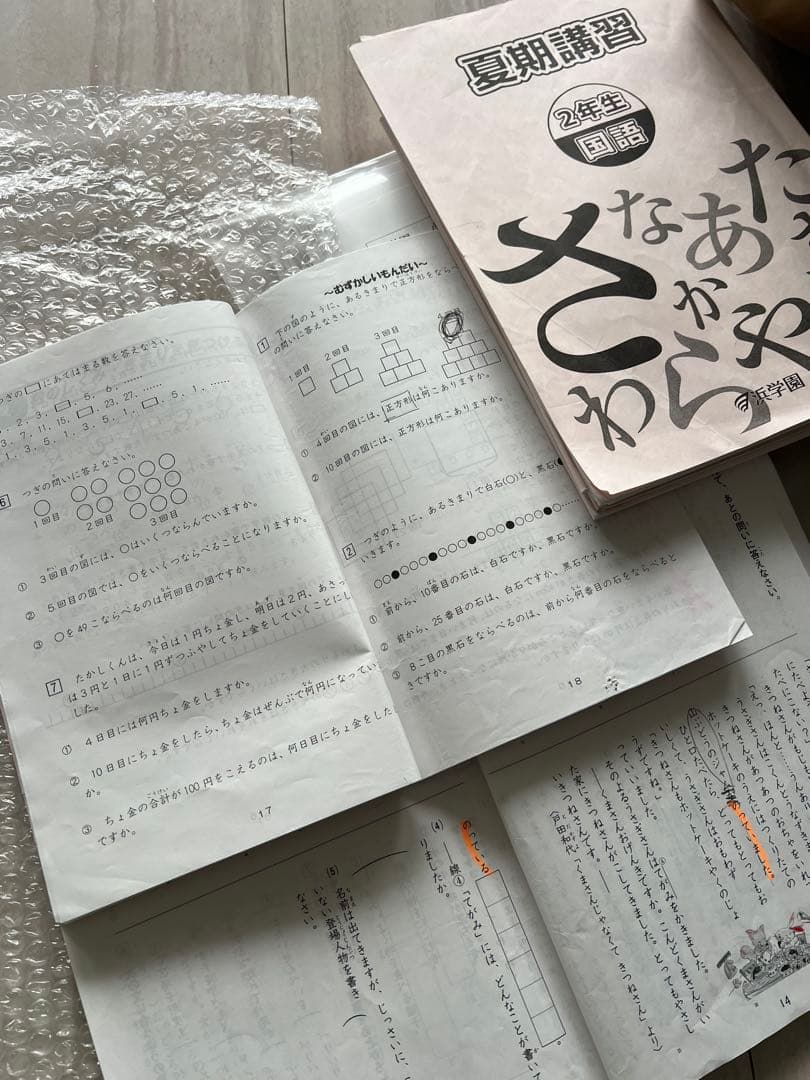 夏期講習
2年生
国語
さ
な
あ
た
か
わ
ら
や
浜学園
つぎの□にあてはまる数を答えなさい。
2, 3, □, 5, 6, ……
3, 7, 11, 15, □, 23, 27, ……
1, 3, 5, 1, 3, 5, 1, □, 5, 1, ……
6 つぎの問いに答えなさい。
1回目 2回目 3回目
① 3回目の図には、○はいくつならんでいますか。
② 5回目の図では、○をいくつならべることになりますか。
③ ○を49こならべるのは何回目の図ですか。
7 たかしくんは、今日は1円ちょ金し、明日は2円、あさっ
は3円と1日に1円ずつふやしてちょ金をしていくことにし
した。
① 4日目には何円ちょ金をしますか。
② 10日目にちょ金をしたら、ちょ金はぜんぶで何円になってい
か。
③ ちょ金の合計が100円をこえるのは、何日目にちょ金をした
ですか。
17
～むずかしいもんだい～
1 下の図のように、あるきまりで正方形をならべ
の問いに答えなさい。
1回目 2回目 3回目
① 4回目の図には、正方形は何こありますか。
② 10回目の図には、正方形は何こありますか。
2 つぎのように、あるきまりで白石(○)と、黒石(●
いきます。
○○●○○○●○○○●○○○●○○○●○……
① 前から、10番目の石は、白石ですか、黒石ですか。
② 前から、25番目の石は、白石ですか、黒石ですか。
③ 8こ目の黒石をならべるのは、前から何番目の石をならべると
きですか。
18
て、あとの問いに答えなさい。
ホットケーキのうえにはつくりたての
ひと口たべたら、うさぎさんはおもわず
きつねさんもホットケーキやくのじょ
うずですね。」
そのよる、うさぎさんはてがみをかきました。
っていいました。
「くまさんおげんきですか。こんどくまさんがい
た家にきつねさんがこしてきました。とってもやさし
いきつねさんです。
（戸田和代「くまさんじゃなくて きつねさん」より）
14
のっている
(4) ――線④「てがみ」には、どんなことが書いて
りましたか。
(5) 名前は出てきますが、じっさいに、
いない登場人物を書き
なさい。